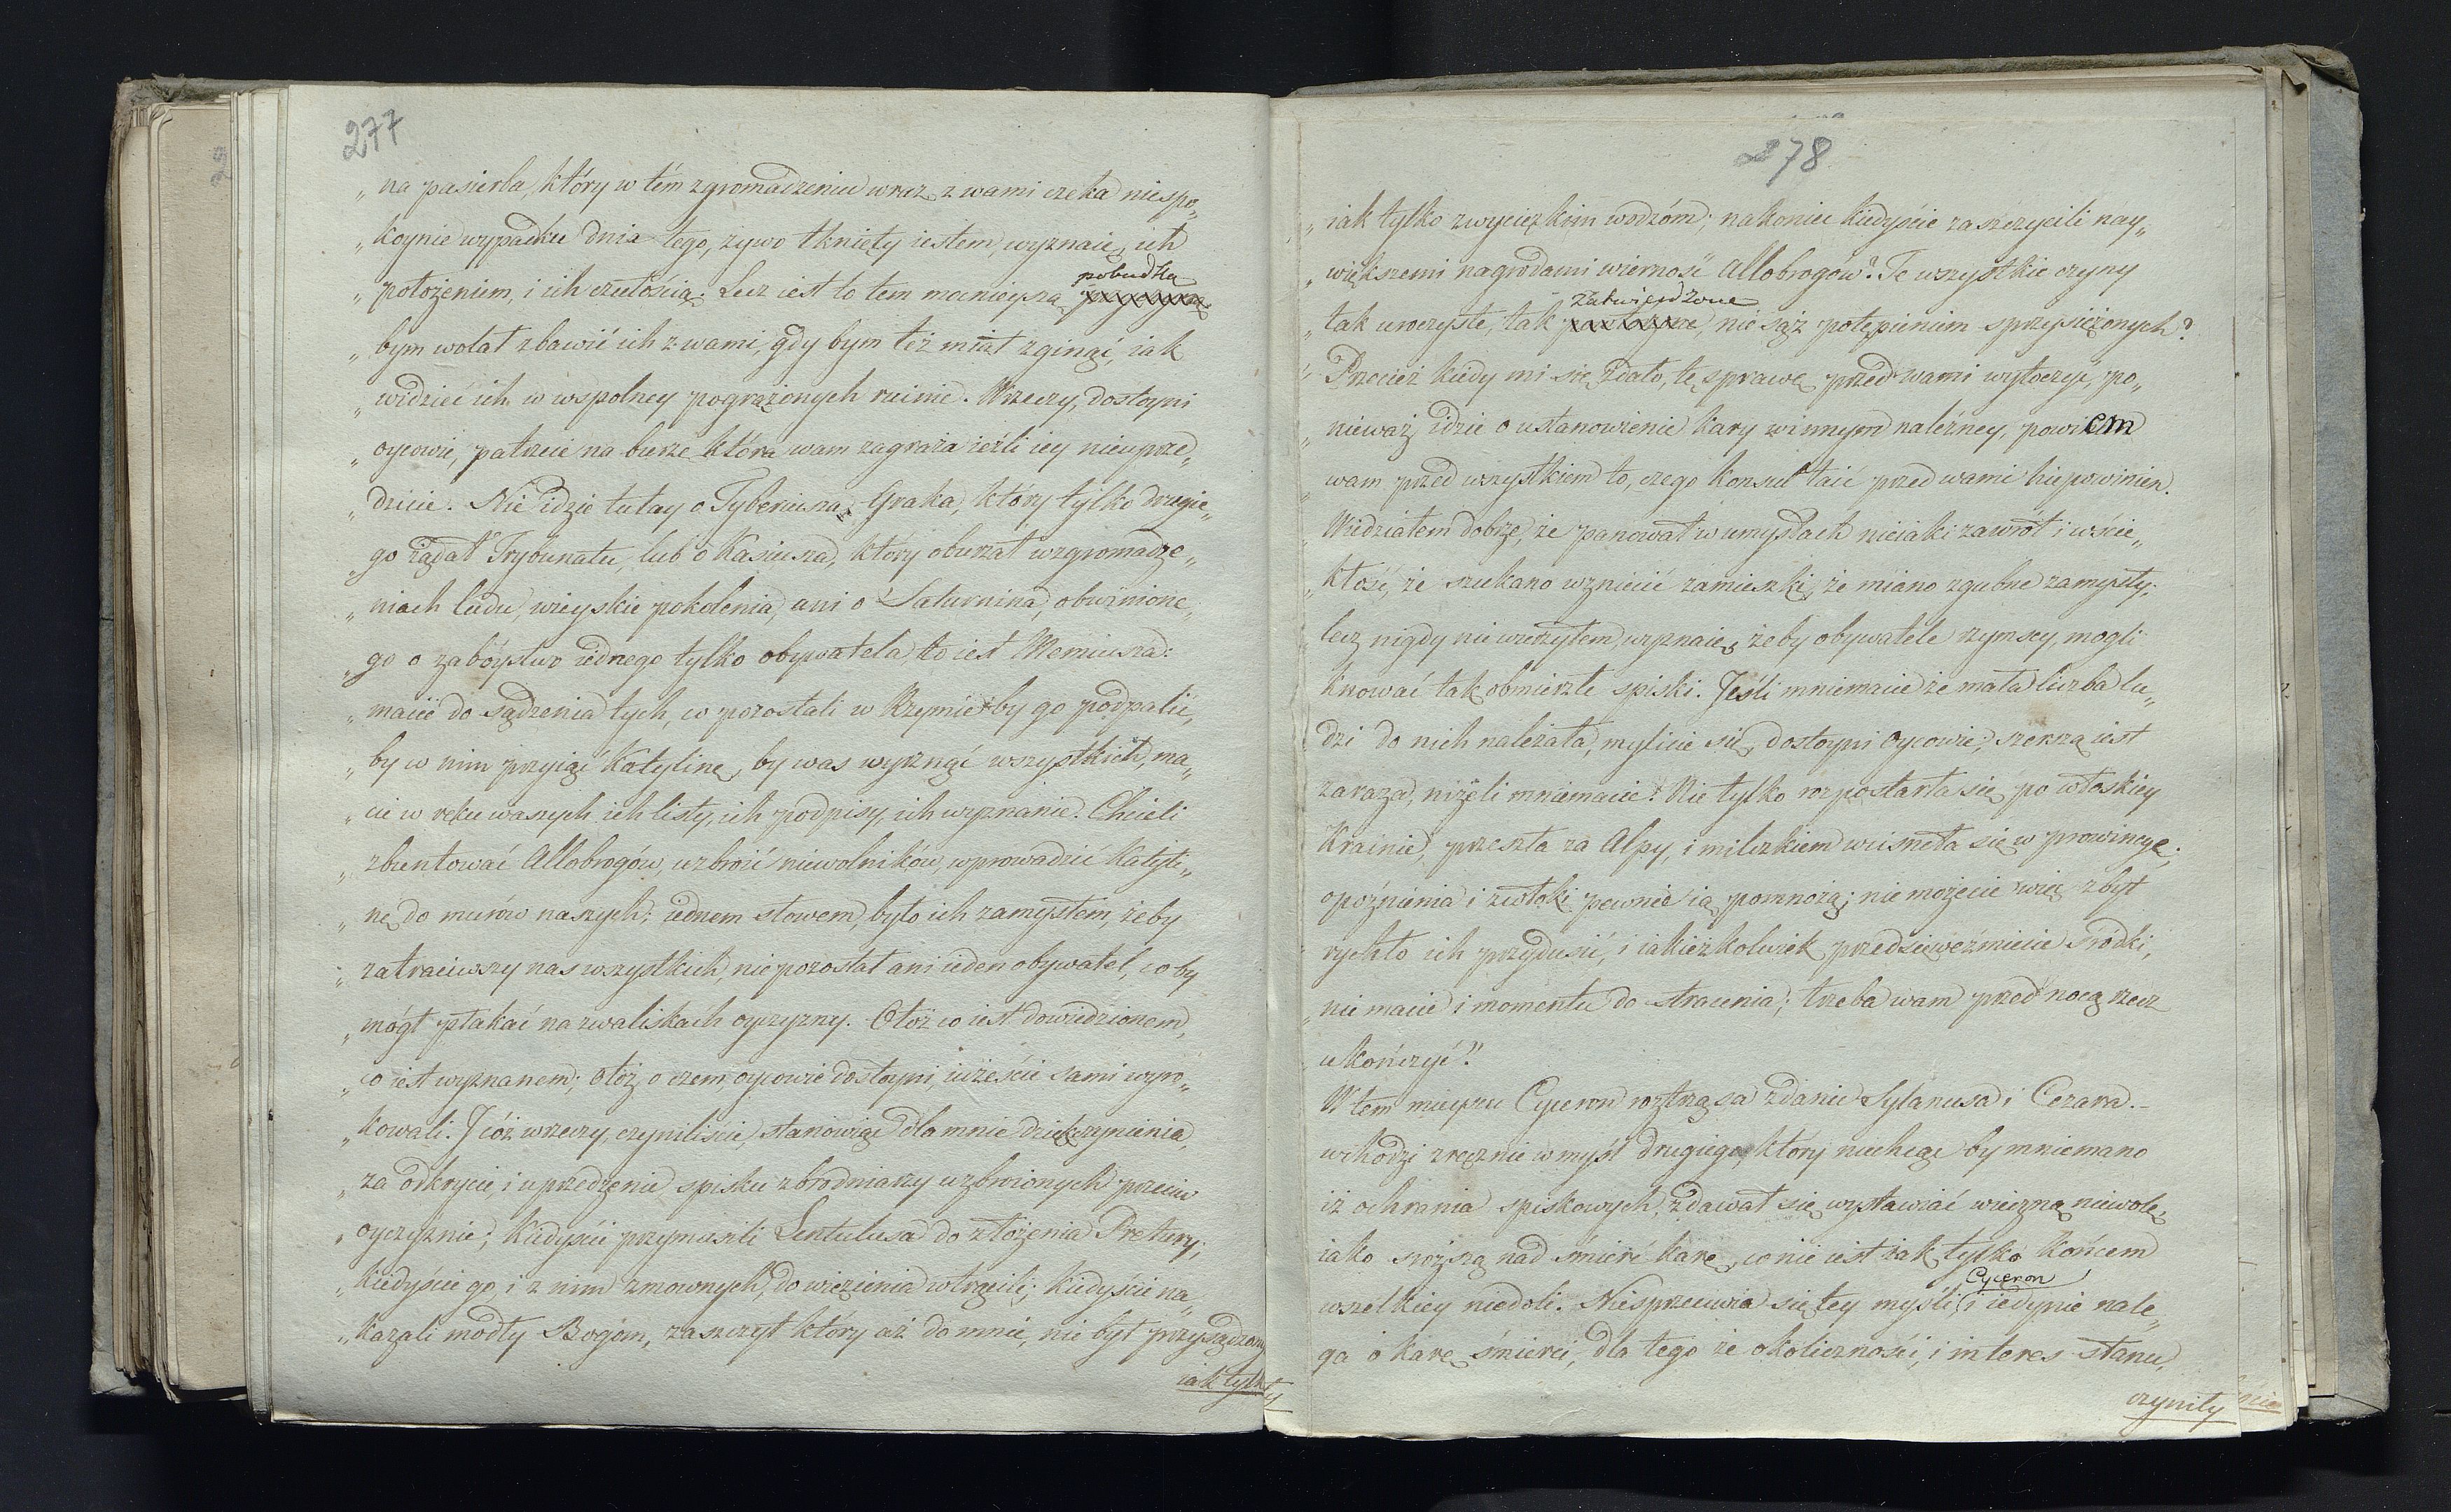 277
„ na pasierba, który w tém zgromadzeniu wraz z wami czeka niespo„
„ koynie wypadku dnia tego, żywo tknięty iestem, wyznaię, ich
pobudką
„ położeniem, i ich czułością. Lecz iest to tem mocnieyszą
„ bym wolał zbawić ich z wami, gdy bym też miał zginąć, iak
„ widzieć ich w wspolney pogrążonych ruinie. Wrzeczy, dostoyni
„ oycowie, patrzcie na burze która wam zagraża ieżli iey nieuprze„
„ dzicie. Nie idzie tutay o Tyberiusza Graka, który tylko drugie„
„ go żądał Trybunatu, lub o Kasiusza, który oburzał wzgromadze„
„ niach ludu, wieyskie pokolenia, ani o Saturnina, obwinione„
„ go o zabóystwo iednego tylko obywatela, to iest Memiusza:
„ macie do sądzenia tych, co pozostali w Rzymie by go podpalić,
„ by w nim przyiąć Katylinę, by was wyrznąć wszystkich, ma„
„ cie w ręku waszych ich listy, ich podpisy, ich wyznanie. Chcieli
„ zbuntować Allobrogów, uzbroić niewolników, wprowadzić Katyli„
„ nę do murów naszych; iednem słowem, było ich zamysłem, żeby
„ zatraciwszy nas wszystkich, nie pozostał ani ieden obywatel, coby
„ mógł płakać na zwaliskach oyczyzny. Otóż co iest dowiedzionem,
„ co iest wyznanem; otóż, o czem, oycowie dostoyni, iużeście sami wyro„
„ kowali. I cóż wrzeczy, czyniliście, stanowiąc dla mnie dziękczynienia,
„ za odkrycie, i uprzedzenie, spisku zbrodniarzy uzbroionych przeciw
„ oyczyznie; kiedyście przymusili Lentulusa do złożenia Pretury;
„ kiedyście go, i z nim zmownych, do więzienia wtrącili; kiedyście na„
„ kazali modły Bogóm, zaszczyt który aż do mnie, nie był przysądzony
iak tylko
278
„ iak tylko zwycięzkim wodzóm; nakoniec kiedyście zaszczycili nay„
„ większemi nagrodami wierność Allobrogów? Te wszystkie czyny
zatwierdzone
„ tak uroczyste, tak nie sąż potępieniem sprzysiężonych?
„ Przecież kiedy mi się zdało, tę sprawę przed wami wytoczyć, po„
„ nieważ idzie o ustanowienie kary winnym należney, powiem
„ wam przed wszystkiem to, czego Konsul taić przed wami niepowinien.
„ Widziałem dobrze, że panował w umysłach nieiaki zawrót i wście„
„ kłość, że szukano wzniecić zamieszki, że miano zgubne zamysły;
lecz nigdy nie wierzyłem, wyznaię, żeby obywatele rzymscy, mogli
knować tak obmierzłe spiski. Jeśli mniemacie że mała liczba lu„
dzi do nich należała, mylicie się, dostoyni Oycowie; szerszą iest
zaraza, niżeli mniemacie. Nie tylko rozpostarła się po włoskiey
Krainie, przeszła za Alpy, i milczkiem wcisnęła się w prowincye;
opóźnienia i zwłoki pewnie ią pomnożą; nie możecie więc zbyt
rychło ich przydusić, i iakieżkolwiek przedsięweźmiecie środki,
„ nie macie i momentu do stracenia; trzeba wam przed nocą rzecz
ukończyć."
W tem mieyscu Cyceron roztrząsa zdanie Sylanusa i Cezara. –
wchodzi zręcznie w myśl drugiego, który niechcąc by mniemano
iż ochrania spiskowych, zdawał się wystawiać wieczną niewolę,
iako sroższą nad śmierć karę, co nie iest iak tylko końcem
Cyceron
wszelkiey niedoli. Niesprzeciwia się tey myśli, i iedynie nale„
ga o karę śmierci, dla tego że okoliczności, i interes stanu,
czyniły